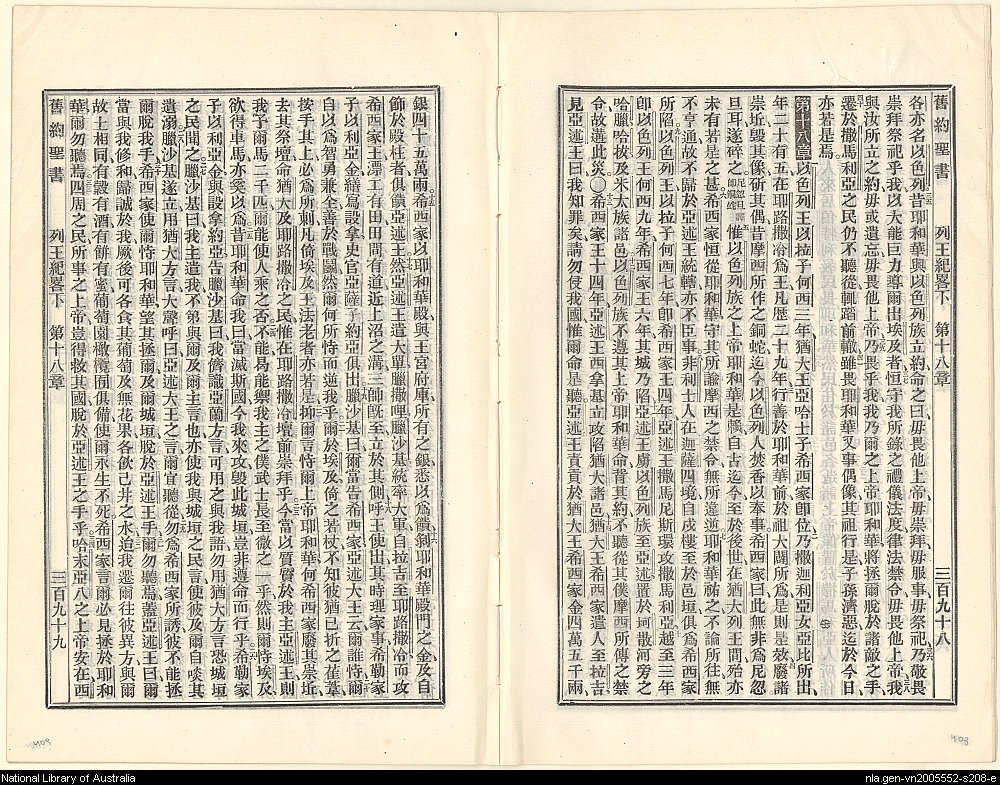 舊約聖書 列王紀畧下 第十八章 三百九十八
各亦名以色列昔耶和華與以色列族立約命之曰毋畏他上帝毋崇拜毋服事毋祭祀乃敬畏
崇拜祭祀乎我以大能巨力導爾出埃及者恒守我所錄之禮儀法度律法禁令毋畏他上帝我
與汝所立之約毋或遺忘毋畏他上帝乃畏乎我我乃爾之上帝耶和華將拯爾脫於諸敵之手
亦若是焉
第十八章 以色列王以拉子何西三年猶大王亞哈士子希西家卽位乃撒迦利亞女亞比所出
年二十有五在耶路撒冷爲王凡歷二十九年行善於耶和華前於祖大闢所爲是則是效廢諸
崇坵毀其像斫其偶昔摩西所作之銅蛇迄今以色列人焚香以奉事希西家曰此無非爲尼忽
旦耳遂碎之 惟以色列族之上帝耶和華是賴自古迄今至於後世在猶大列王間殆亦
未有若是之甚希西家恒從耶和華守其所諭摩西之禁令無所違逆耶和華祐之不論所往無
不亨通故不歸於亞述王統轄亦不臣事非利士人在迦薩四境自戍樓至於邑垣俱爲希西家
所陷以色列王以拉子何西七年卽希西家王四年亞述王撒馬尼斯環攻撒馬利亞越至三年
卽以色列王何西九年希西家王六年其城乃陷亞述王虜以色列族至亞述置於坷散河旁之
哈臘哈拔及米太族諸邑以以色列族不遵其上帝耶和華命背其約不聽從其僕摩西所傳之禁
令故遘此災〇希西家王十四年亞述王西拿基立攻陷猶大諸邑猶大王希西家遣人至拉吉
見亞述王曰我知罪矣請勿侵我國惟爾命是聽亞述王責貢於猶大王希西家金四萬五千兩
舊約聖書 列王紀畧下 第十八章 三百九十九
銀四十五萬兩希西家以耶和華殿與王宮府庫所有之銀悉以爲饋剝耶和華殿門之金及自
飾於殿柱者俱饋亞述王然亞述王遣大單臘撒哩臘沙基統率大軍自拉吉至耶路撒冷而攻
希西家王漂工有田田間有道近上沼之溝三帥旣至立於其側呼王使出其時理家事希勒家
子以利亞金繕寫設拿史官亞薩子約亞俱出臘沙基曰爾當告希西家亞述大王云爾誰恃爾
自以爲智勇兼全善於戰鬬然爾何所恃而逆我乎爾於埃及倚之若杖不知彼猶已折之萑葦
按手其上必爲所刺凡倚埃及王法老者亦若是抑爾言恃爾上帝耶和華何希西家廢其崇坵
去其祭壇命猶大及耶路撒冷之民惟在耶路撒冷壇前崇拜乎今當以質賚於我主亞述王則
我予爾馬二千匹爾能使人乘之否不能曷能禦我主之僕武士長至微之一乎然則爾恃埃及
欲得車馬亦奚以爲昔耶和華命我曰當滅斯國今我來攻毀此城垣豈非遵命而行乎希勒家
子以利亞金與設拿約亞告臘沙基曰我儕識亞蘭方言可用之與我語勿用猶大方言恐城垣
之民聞之臘沙基曰我主遣我不第與爾及爾主言也亦使我與城垣之民言使彼及爾自啖其
遺溺臘沙基遂立用猶大方言大聲呼曰亞述大王之言爾宜聽從勿爲希西家所誘彼不能拯
爾脫我手希西家使爾恃耶和華望其拯爾及爾城垣脫於亞述王手爾勿聽焉蓋亞述王曰爾
當與我修和歸誠於我厥後可各食其葡萄及無花果各飲己井之水迨我遷爾往彼異方與爾
故土相同有穀有酒有餅有蜜葡萄園橄欖囿俱備使爾永生不死希西家言爾必見拯於耶和
華爾勿聽焉四周之民所事之上帝豈得救其國脫於亞述王之手乎哈末亞八之上帝安在西
National Library of Australia
nla.gen-vn2005552-s208-e